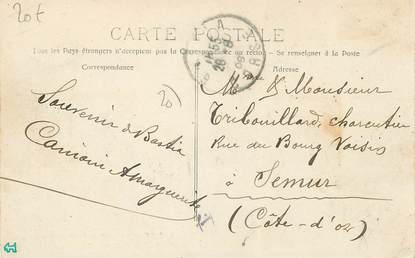 20€
CARTE POSTALE
Tous les Pays étrangers n'acceptent pas la Correspondance au recto = Se renseigner à la Poste
Correspondance
Adresse
20
Souvenir de Bastia
M & Monsieur
Tribouillard, charcutier
Rue du Bourg Voisin
à Semur
(Côte-d'Or)